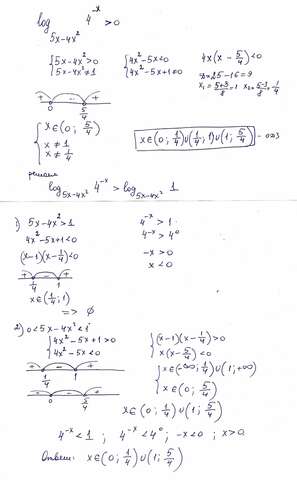 log_{5x-4x²} 4^{-x} > 0
{ 5x-4x²>0
5x-4x²≠1
{ 4x²-5x<0
4x²-5x+1≠0
4x(x-5/4)<0
D=25-16=9
x₁=(5+3)/8=1 x₂=(5-3)/8=1/4
+ - +
0 5/4
{ x∈(0; 5/4)
x≠1
x≠1/4
x∈(0; 1/4)∪(1/4; 1)∪(1; 5/4) - ОДЗ
решаем
log_{5x-4x²} 4^{-x} > log_{5x-4x²} 1
1) 5x-4x²>1
4x²-5x+1<0
(x-1)(x-1/4)<0
+ - +
1/4 1
x∈(1/4; 1)
=> ∅
4^{-x}>1
4^{-x}>4⁰
-x>0
x<0
2) 0<5x-4x²<1
{ 4x²-5x+1>0
4x²-5x<0
+ - +
1/4 1
+ - +
0 5/4
{ (x-1)(x-1/4)>0
x(x-5/4)<0
{ x∈(-∞; 1/4)∪(1; +∞)
x∈(0; 5/4)
x∈(0; 1/4)∪(1; 5/4)
4^{-x}<1 ; 4^{-x}<4⁰ ; -x<0 ; x>0
Ответ: x∈(0; 1/4)∪(1; 5/4)